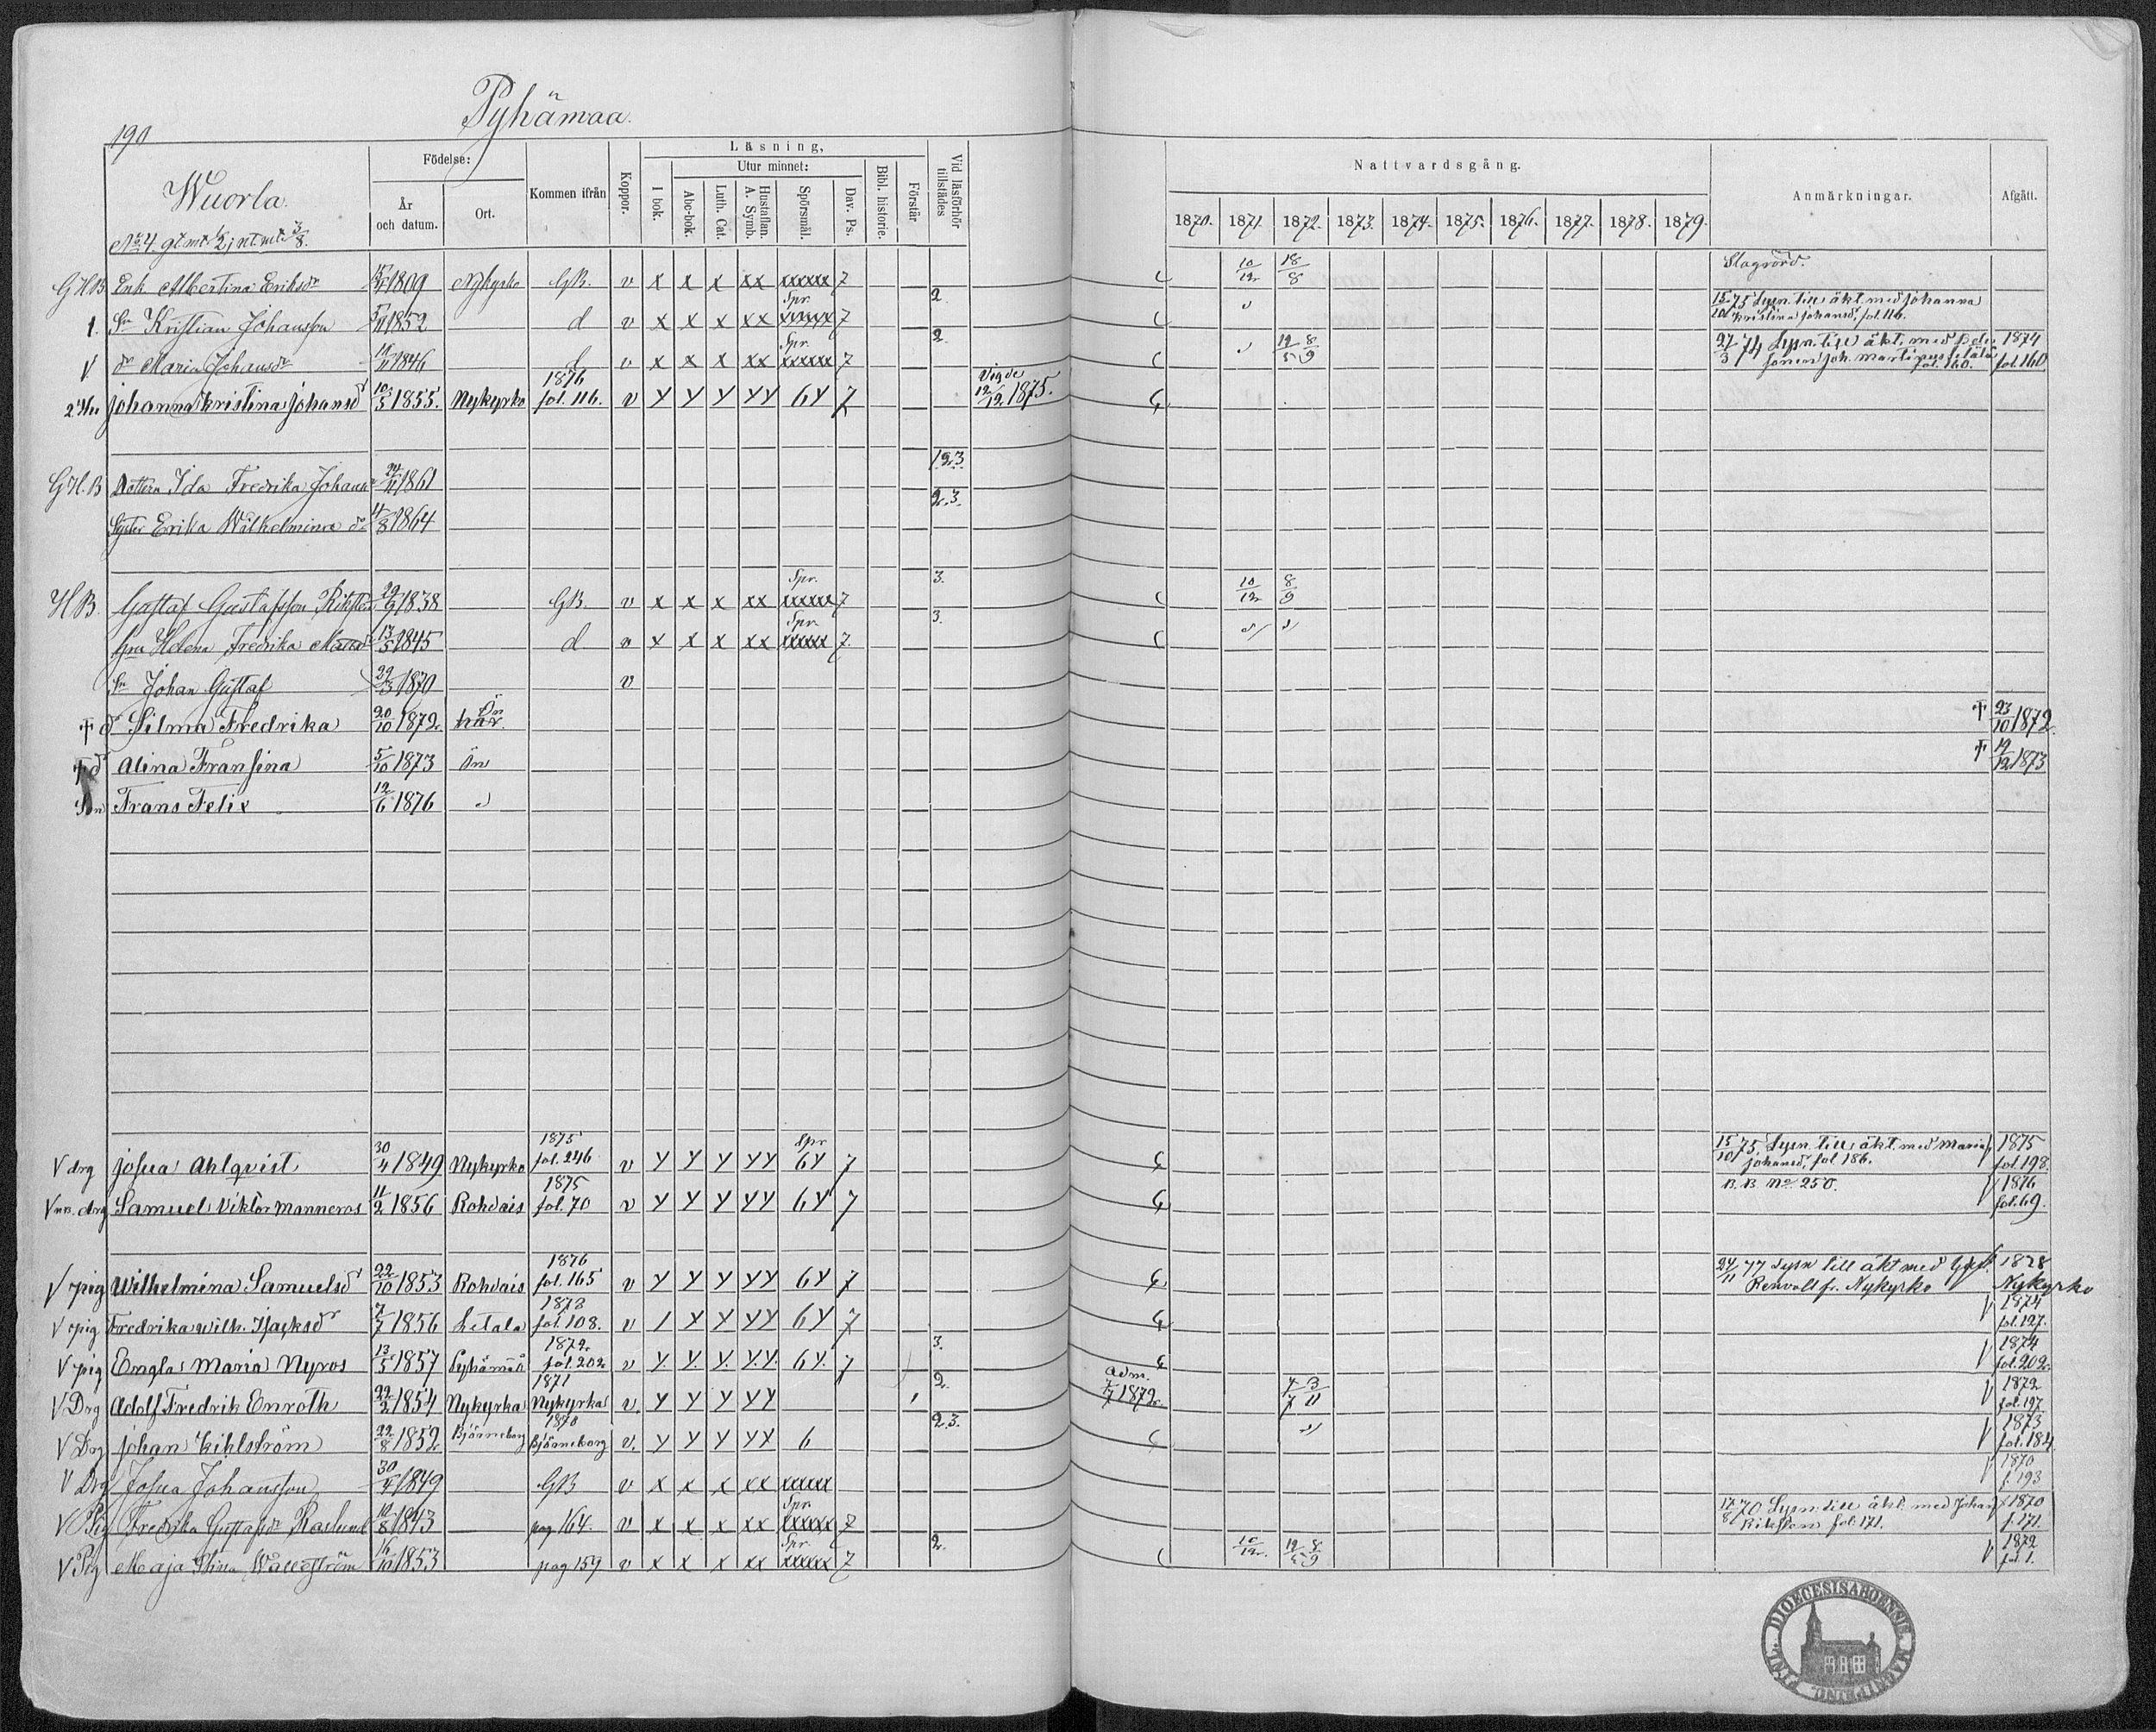 Pyhämaa.
190
Wuorla.
No 4. gt mt 1/2; nt mt 3/8.
Födelse:
År och datum.
Ort.
Kommen ifrån
Koppor.
Läsning,
I bok.
Utur minnet:
Abc-bok.
Luth. Cat.
Hustaflan. A. Symb.
Spörsmål.
Dav. Ps.
Bibl. historie.
Förstår.
Vid läsförhör tillstädes
Nattvardsgång.
1870. 1871. 1872. 1873. 1874. 1875. 1876. 1877. 1878. 1879.
Anmärkningar.
Afgått.
GHB Enk. Albertina Eriksdr 1809 Nykyrko GB. v x x x xx xxxxx 7 10/12 18/8 Slagrörd.
1. Sn Kristian Johansson 1852 d v x x x xx Spr. xxxxx 7 2. 15/10 75 Lysn. till äkt. med Johanna Kristina Johansd, fol. 116.
V dr Maria Johansdr 1846 d v x x x xx Spr. xxxxx 7 2. 12/5 8/9 27/3 74 Lysn. till äkt. med fol. 160. 1874 fol. 160
2. Hu Johanna Kristina Johansd 10/5 1855. Nykyrko 1876 fol. 116. v Y Y Y YY 6Y 7 Vigde 12/12 1875.
GH.B Dottern Ida Fredrika Johans 24/11 1861 1.2.3.
Syster Erika Wilhelmina dr 14/8 1864 2.3.
HB. Gustaf Gustafsson Rikstén 29/9 1838 GB. v x x x xx Spr. xxxxx 7 3. 10/12 8/9
Hru Helena Fredrika Mattsdr 13/5 1845 d v x x x xx Spr. xxxxx 7. 3.
Sn Johan Gustaf 29/3 1870 v
† dr Silma Fredrika 20/10 1872 här Ön † 23/10 1872.
† dr Alina Fransina 5/10 1873 Ön † 19/12 1873
Son Frans Felix 12/6 1876
V drg Josua Ahlqvist 30/4 1849 Nykyrko 1875 fol. 246 v Y Y Y YY Spr 6Y 7 15/10 75. Lysn. till äkt. med Maria Johansd, fol 186. 1875 fol. 198.
V drg Samuel Viktor Manneros 11/2 1856 Rohdais 1875 fol. 70 v Y Y Y YY 6Y 7 B. B. No 250. 1876 fol. 69.
V pig Wilhelmina Samuelsd 22/10 1853 Rohdais 1876 fol. 165 v Y Y Y YY 6Y 7 24/11 77 Lysn till äkt med Gust. Renvall fr. Nykyrko 1878 Nykyrko
V pig Fredrika Wilh. Isaksdr 7/7 1856 Letala 1873 fol. 108. v 1 Y Y YY 6Y 7 V 1874 fol. 127.
V pig Engla Maria Nyros 13/5 1857 Pyhämaa 1872 fol. 202 v Y. Y. Y. Y.Y. 6Y. 7 3. V 1874 fol. 202.
V Drg Adolf Fredrik Enroth 22/2 1854 Nykyrka 1871 Nykyrka v. Y Y Y YY 2. adm. 7/7 1872. 7/7 3/11 V 1872 fol. 197
V Drg Johan Kihlström 22/8 1852 Björneborg 1870 Björneborg v. Y Y Y YX 6 2.3. V 1873 fol. 184
V Drg Josua Johansson 30/4 1849 GB v x x x xx xxxxx V 1870 f. 193
V Pig Fredrika Gustafsdr Roslund 10/8 1843 pag 164. v x x x xx Spr. xxxxx 7 17/8 70. Lysn. till äkt. med Johan Rikstén fol. 171. 1870 f. 171.
V Pig Maja Stina Wallström 16/10 1853 pag 159 v x x x xx Spr. xxxxx 7 2. 10/12. 12/5 8/9 V 1872 fol 1.